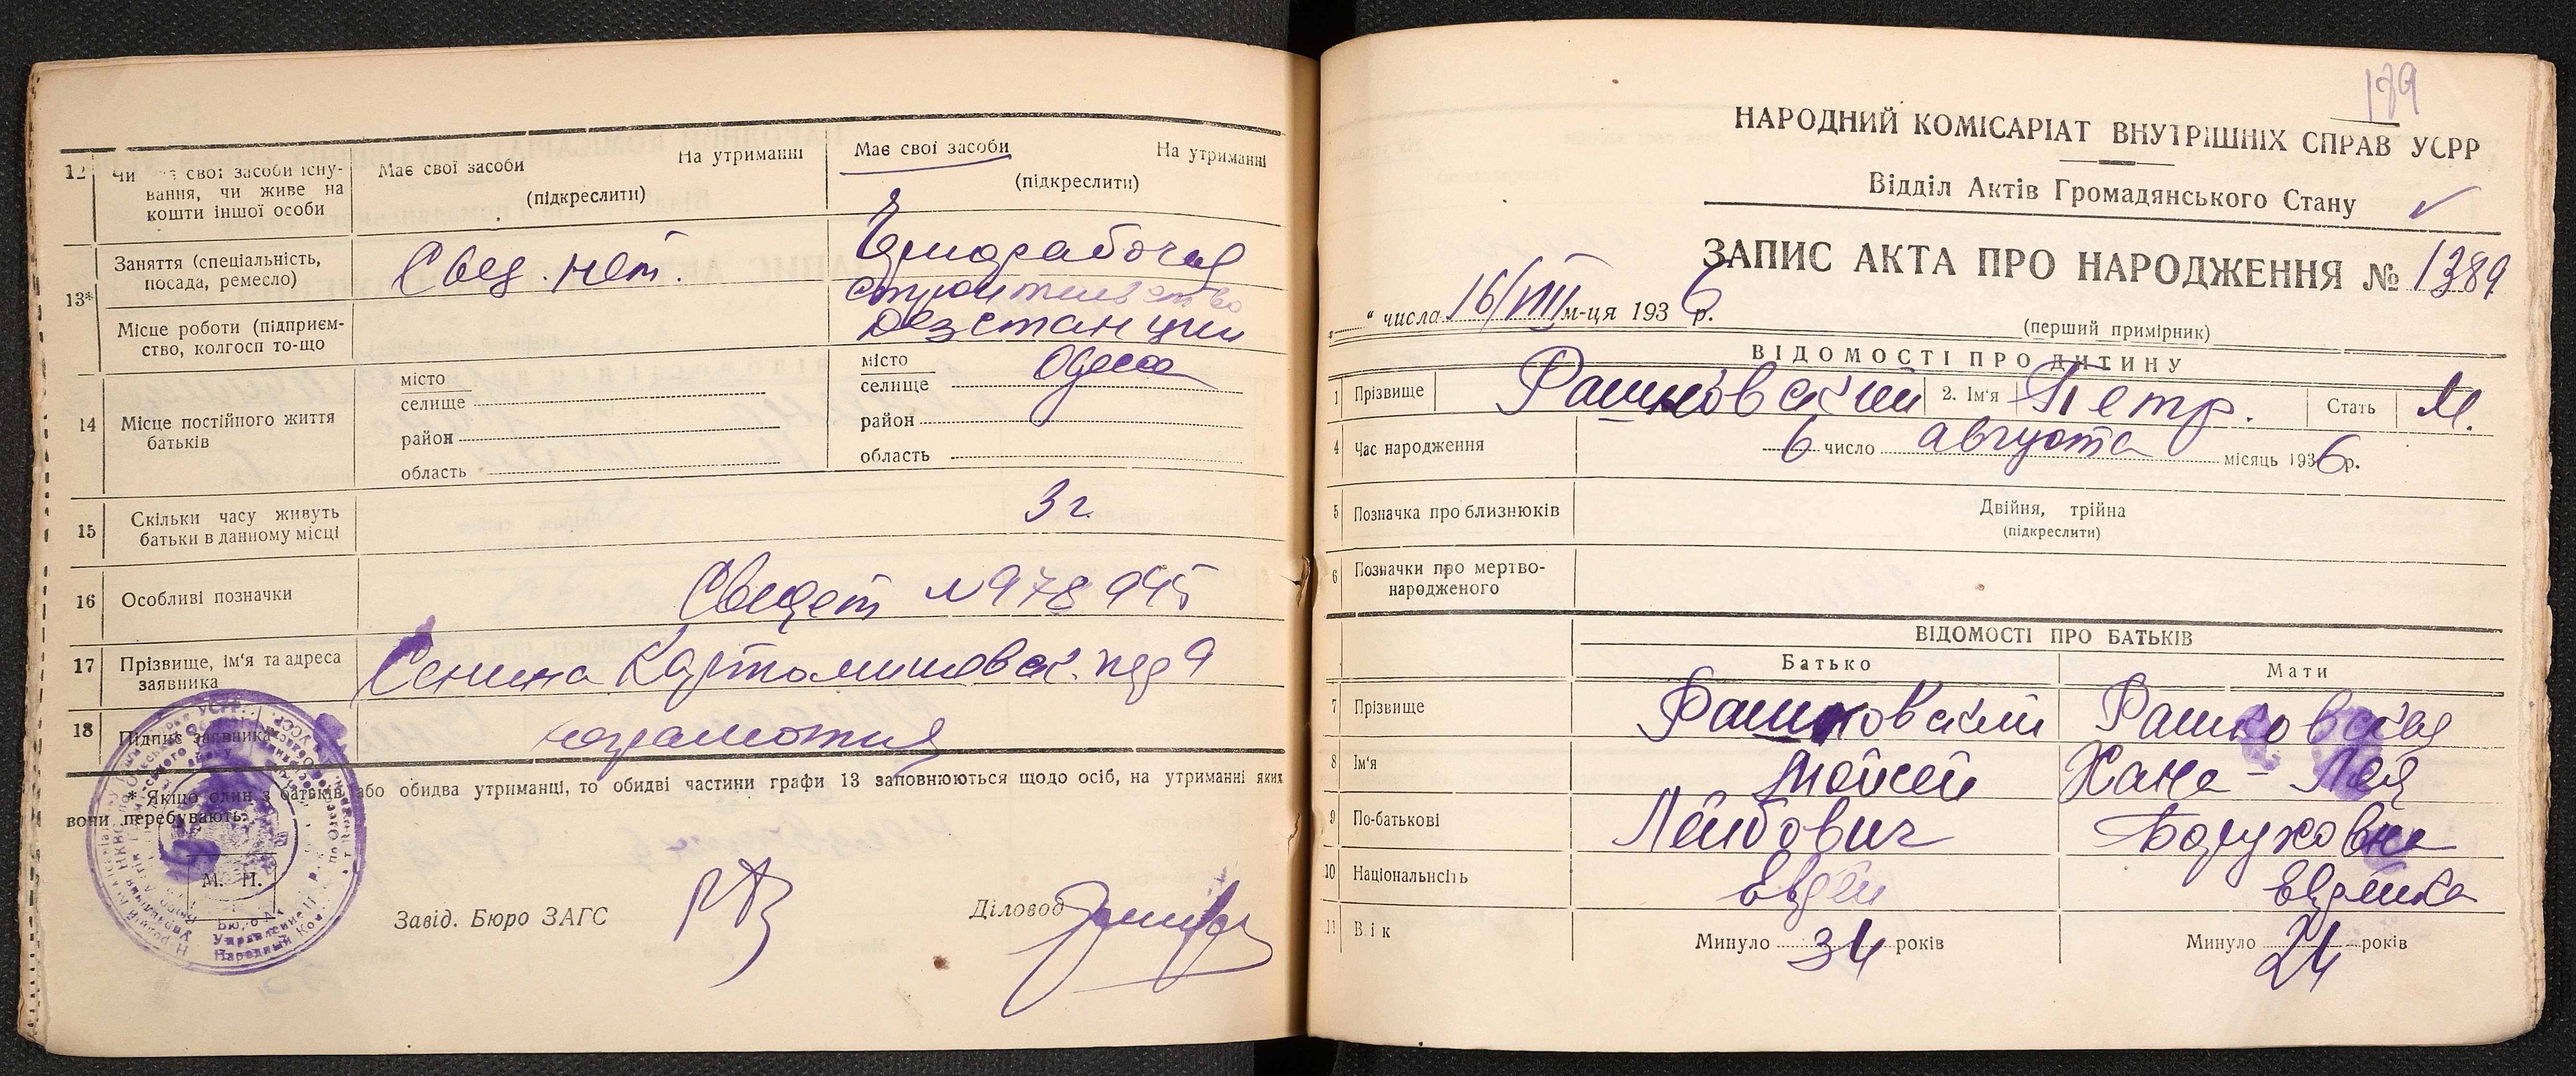 12 Чи має свої засоби існу-
вання, чи живе на
кошти іншої особи
Має свої засоби На утриманні
(підкреслити)
Має свої засоби На утриманні
(підкреслити)
13*
Заняття (спеціальність,
посада, ремесло)
Свед. нет.
Чернорабочая
Місце роботи (підприєм-
ство, колгосп то-що
строительство
дезстанции
14 Місце постійного життя
батьків
місто
селище
район
область
місто Одесса
селище
район
область
15 Скільки часу живуть
батьки в данному місці
3 г.
16 Особливі позначки
Свидет № 978945
17 Прізвище, ім'я та адреса
заявника
Сенина Картамышовск. 9
18 Підпис заявника
неграмотная
* Якщо один з батьків або обидва утриманці, то обидві частини графи 13 заповнюються щодо осіб, на утриманні яких
вони перебувають.
М. П.
Завід. Бюро ЗАГС
Діловод
179
НАРОДНИЙ КОМІСАРІАТ ВНУТРІШНІХ СПРАВ УСРР
Відділ Актів Громадянського Стану
ЗАПИС АКТА ПРО НАРОДЖЕННЯ № 1389
" числа 16/VIII м-ця 1936 р.
(перший примірник)
ВІДОМОСТІ ПРО ДИТИНУ
1 Прізвище Рашковский 2. Ім'я Петр. Стать М.
4 Час народження 6 число августа місяць 1936 р.
5 Позначка про близнюків
Двійня, трійня
(підкреслити)
6 Позначки про мертво-
народженого
ВІДОМОСТІ ПРО БАТЬКІВ
Батько Мати
7 Прізвище Рашковский Рашковская
8 Ім'я Мойсей Хана-Лея
9 По-батькові Лейбович Боруховна
10 Національність Еврей Еврейка
11 Вік Минуло 34 років Минуло 24 років